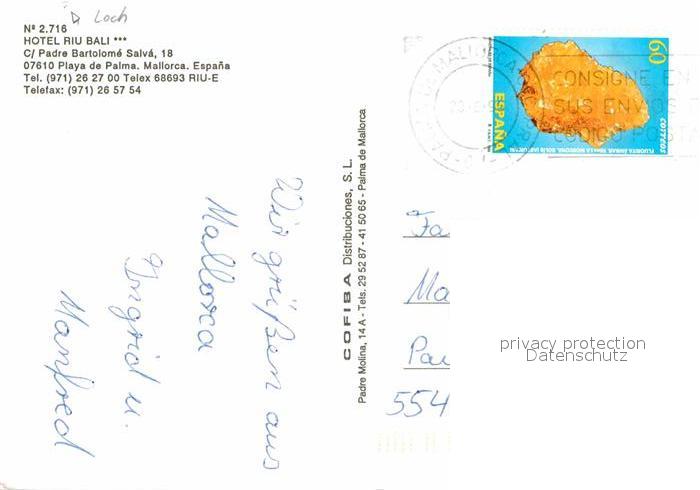 Loch
Nº 2.716
HOTEL RIU BALI ***
C/ Padre Bartolomé Salvá, 18
07610 Playa de Palma. Mallorca. España
Tel. (971) 26 27 00 Telex 68693 RIU-E
Telefax: (971) 26 57 54
Wir grüßen aus
Mallorca
Ingrid u.
Manfred
COFIBA Distribuciones, S.L.
Padre Molina, 14 A - Tels. 29 52 87 - 41 50 65 - Palma de Mallorca
60
ESPAÑA
CORREOS
CONSIGNE EN
SUS ENVIOS
CODIGO POSTA
Fa
Ma
Pau
554
privacy protection
Datenschutz